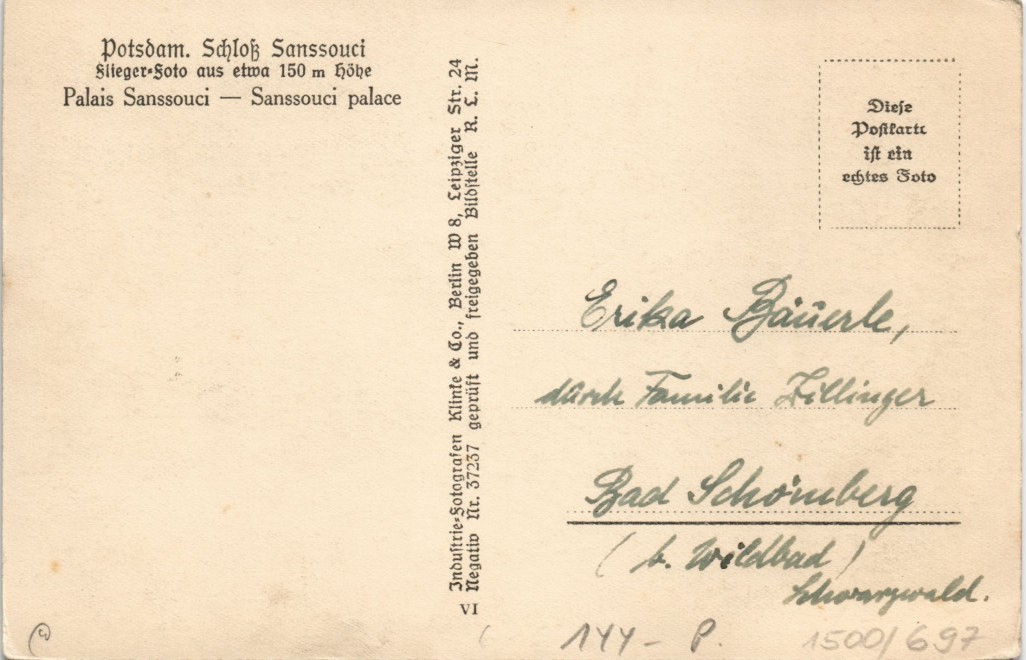 Potsdam. Schloß Sanssouci
Flieger-Foto aus etwa 150 m Höhe
Palais Sanssouci — Sanssouci palace
Industrie-Fotografen Klinke & Co., Berlin W 8, Leipziger Str. 24
Negativ Nr. 37237 geprüft und freigegeben Bildstelle R. L. M.
VI
Diese
Postkarte
ist ein
echtes Foto
Erika Bäuerle,
durch Familie Zillinger
Bad Schömberg
(b. Wildbad)
Schwarzwald.
144 - P.
1500/697